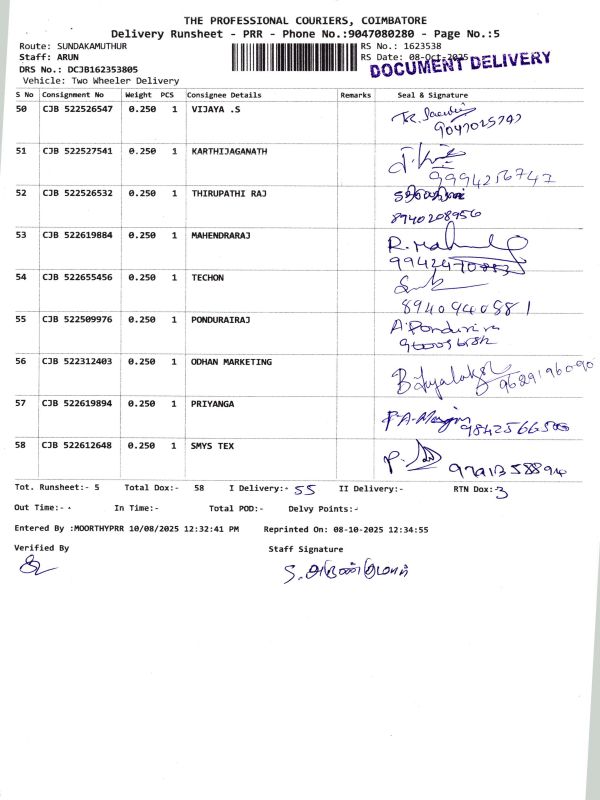 THE PROFESSIONAL COURIERS, COIMBATORE
Delivery Runsheet - PRR - Phone No.:9047080280 - Page No.:5
Route: SUNDAKAMUTHUR
RS No.: 1623538
Staff: ARUN
RS Date: 08-Oct-2025
DRS No.: DCJB162353805
DOCUMENT DELIVERY
Vehicle: Two Wheeler Delivery
S No Consignment No Weight PCS Consignee Details Remarks Seal & Signature
50 CJB 522526547 0.250 1 VIJAYA .S
51 CJB 522527541 0.250 1 KARTHIJAGANATH
9994256747
52 CJB 522526532 0.250 1 THIRUPATHI RAJ
8940208956
53 CJB 522619884 0.250 1 MAHENDRARAJ
54 CJB 522655456 0.250 1 TECHON
8940940881
55 CJB 522509976 0.250 1 PONDURAIRAJ
56 CJB 522312403 0.250 1 ODHAN MARKETING
9689196090
57 CJB 522619894 0.250 1 PRIYANGA
58 CJB 522612648 0.250 1 SMYS TEX
Tot. Runsheet:- 5 Total Dox:- 58 I Delivery:- 55 II Delivery:- RTN Dox:-3
Out Time:- In Time:- Total POD:- Delvy Points:-
Entered By :MOORTHYPRR 10/08/2025 12:32:41 PM Reprinted On: 08-10-2025 12:34:55
Verified By Staff Signature